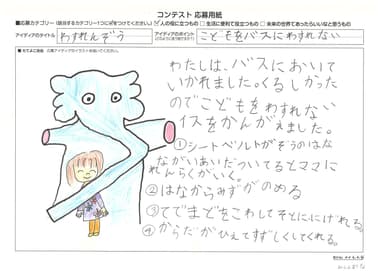 コンテスト 応募用紙
■応募カテゴリー (該当するカテゴリー1つに☑をつけてください) ☑人の役に立つもの □生活に便利で役立つもの □未来の世界であったらいいなと思うもの
アイディアのタイトル わすれんぞう
アイディアのポイント こどもをバスにわすれない
わたしは、バスにおいて
いかれました。くるしかった
のでこどもをわすれない
イスをかんがえました。
①シートベルトがぞうのはな
ながいあいだついてるとママに
れんらくがいく。
②はなからみずがのめる
③てでまどをこわしてそとににげれる。
④からだがひえてすずしくしてくれる。